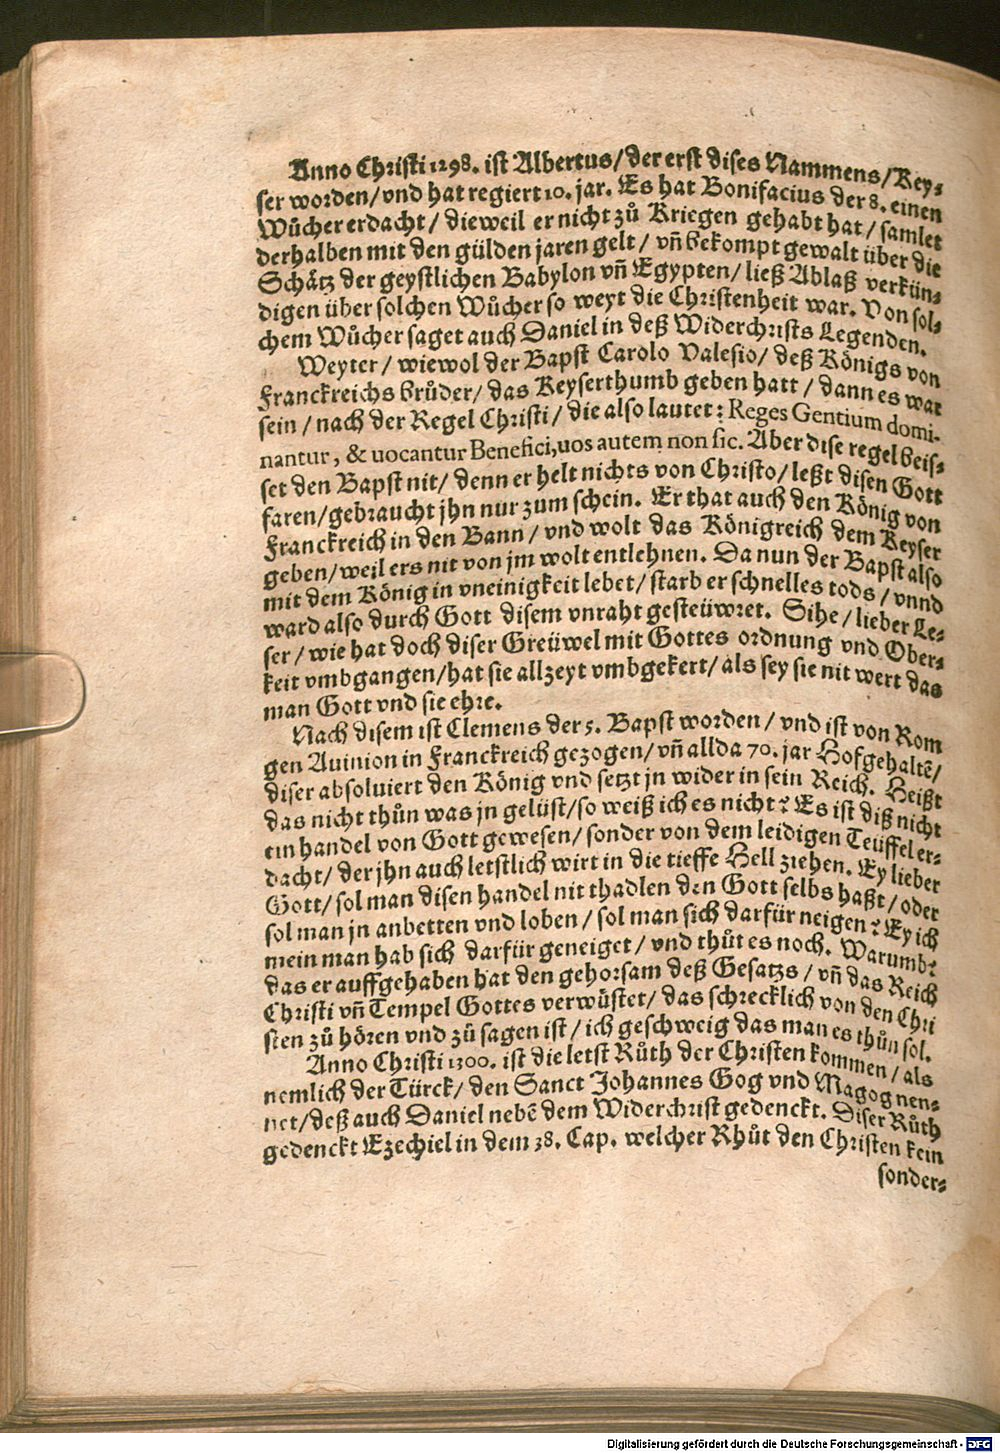 Anno Christi 1298. ist Albertus/der erst dises Nammens/Key⸗
ser worden/vnd hat regiert 10. jar. Es hat Bonifacius der 8. einen
Wůcher erdacht/ dieweil er nicht zů Kriegen gehabt hat/ samlet
derhalben mit den gülden jaren gelt/ vñ bekompt gewalt über die
Schätz der geystlichen Babylon vñ Egypten/ ließ Ablaß verkün⸗
digen über solchen Wůcher so weyt die Christenheit war. Von sol⸗
chem Wůcher saget auch Daniel in deß Widerchrists Legenden.
Weyter/ wiewol der Bapst Carolo Valesio/ deß Königs von
Franckreichs brůder/ das Keyserthumb geben hatt/ dann es war
sein/ nach der Regel Christi/ die also lautet: Reges Gentium domi-
nantur, & uocantur Benefici, uos autem non sic. Aber dise regel beis⸗
set den Bapst nit/ denn er helt nichts von Christo/ leßt disen Gott
faren/gebraucht jhn nur zum schein. Er that auch den König von
Franckreich in den Bann/ vnd wolt das Königreich dem Keyser
geben/weil ers nit von jm wolt entlehnen. Da nun der Bapst also
mit dem König in vneinigkeit lebet/ starb er schnelles tods/ vnnd
ward also durch Gott disem vnraht gesteüwret. Sihe/ lieber Le⸗
ser/ wie hat doch diser Greüwel mit Gottes ordnung vnd Ober⸗
keit vmbgangen/hat sie allzeyt vmbgekert/ als sey sie nit wert das
man Gott vnd sie ehre.
Nach disem ist Clemens der 5. Bapst worden/ vnd ist von Rom
gen Auinion in Franckreich gezogen/vñ allda 70. jar Hof gehaltē/
diser absoluiert den König vnd setzt jn wider in sein Reich. Heißt
das nicht thůn was jn gelüst/so weiß ich es nicht? Es ist diß nicht
ein handel von Gott gewesen/ sonder von dem leidigen Teüffel er⸗
dacht/ der jhn auch letstlich wirt in die tieffe Hell ziehen. Ey lieber
Gott/ sol man disen handel nit thadlen den Gott selbs haßt/ oder
sol man jn anbetten vnd loben/ sol man sich darfür neigen? Ey ich
mein man hab sich darfür geneiget/ vnd thůt es noch. Warumb?
das er auffgehaben hat den gehorsam deß Gesatzs/ vñ das Reich
Christi vñ Tempel Gottes verwüstet/ das schrecklich von den Chri
sten zů hören vnd zů sagen ist/ ich geschweig das man es thůn sol.
Anno Christi 1300. ist die letst Růth der Christen kommen/ als
nemlich der Türck/ den Sanct Johannes Gog vnd Magog nen⸗
net/deß auch Daniel nebē dem Widerchrist gedenckt. Diser Růth
gedenckt Ezechiel in dem 38. Cap. welcher Rhůt den Christen kein
sonder⸗
Digitalisierung gefördert durch die Deutsche Forschungsgemeinschaft - DFG